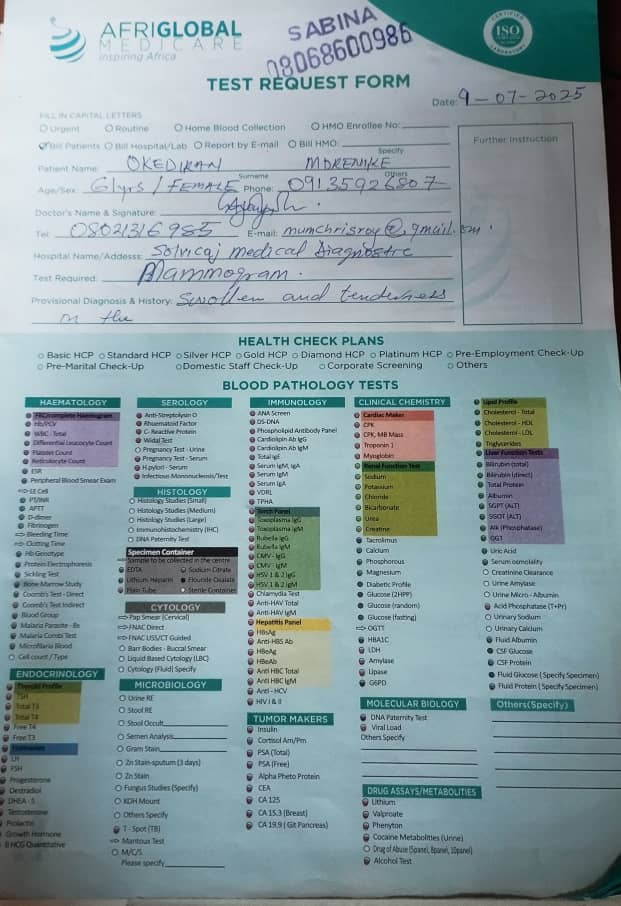 AFRIGLOBAL
MEDICARE
Inspiring Africa
SABINA
08068600986
CERTIFIED
ISO
TEST REQUEST FORM
Date: 9-07-2025
FILL IN CAPITAL LETTERS
Urgent Routine Home Blood Collection HMO Enrollee No:
Bill Patients Bill Hospital/Lab Report by E-mail Bill HMO:
Specify
Further Instruction
Patient Name: OKEDIRAN MORENIKE
Surname Others
Age/Sex: 61yrs / FEMALE Phone: 09135926807
Doctor's Name & Signature:
Tel: 08021316985 E-mail: mumchrisroy@gmail.com
Hospital Name/Address: Solvicaj medical Diagnostic
Test Required: Mammogram.
Provisional Diagnosis & History: Swollen and tenderness
in the
HEALTH CHECK PLANS
Basic HCP Standard HCP Silver HCP Gold HCP Diamond HCP Platinum HCP Pre-Employment Check-Up
Pre-Marital Check-Up Domestic Staff Check-Up Corporate Screening Others
BLOOD PATHOLOGY TESTS
HAEMATOLOGY
FBC/complete Haemogram
Hb/PCV
WBC - Total
Differential Leucocyte Count
Platelet Count
Reticulocyte Count
ESR
Peripheral Blood Smear Exam
LE Cell
PT/INR
APTT
D-dimer
Fibrinogen
Bleeding Time
Clotting Time
Hb Genotype
Protein Electrophoresis
Sickling Test
Bone Marrow Study
Coomb's Test - Direct
Coomb's Test Indirect
Blood Group
Malaria Parasite - Bs
Malaria Combi Test
Microfilaria Blood
Cell count / Type
ENDOCRINOLOGY
Thyroid Profile
TSH
Total T3
Total T4
Free T4
Free T3
LH
FSH
Progesterone
Oestradiol
DHEA - S
Testosterone
Prolactin
Growth Hormone
B HCG Quantitative
SEROLOGY
Anti-Streptolysin O
Rheumatoid Factor
C- Reactive Protein
Widal Test
Pregnancy Test - Urine
Pregnancy Test - Serum
H.pylori - Serum
Infectious Mononucleosis/Test
HISTOLOGY
Histology Studies (Small)
Histology Studies (Medium)
Histology Studies (Large)
Immunohistochemistry (IHC)
DNA Paternity Test
Specimen Container
Sample to be collected in the centre
EDTA Sodium Citrate
Lithium Heparin Flouride Oxalate
Plain Tube Sterile Container
CYTOLOGY
Pap Smear (Cervical)
FNAC Direct
FNAC USS/CT Guided
Barr Bodies - Buccal Smear
Liquid Based Cytology (LBC)
Cytology (Fluid) Specify
MICROBIOLOGY
Urine RE
Stool RE
Stool Occult
Semen Analysis
Gram Stain
Zn Stain-sputum (3 days)
Zn Stain
Fungus Studies (Specify)
KOH Mount
Others Specify
T - Spot (TB)
Mantoux Test
M/C/S
Please specify
IMMUNOLOGY
ANA Screen
DS-DNA
Phospholipid Antibody Panel
Cardiolipin Ab IgG
Cardiolipin Ab IgM
Total IgE
Serum IgM, IgA
Serum IgM
Serum IgA
VDRL
TPHA
Torch Panel
Toxoplasma IgG
Toxoplasma IgM
Rubella IgG
Rubella IgM
CMV - IgG
CMV - IgM
HSV 1 & 2 IgG
HSV 1 & 2 IgM
Chlamydia Test
Anti-HAV Total
Anti-HAV IgM
Hepatitis Panel
HBsAg
Anti-HBS Ab
HBeAg
HBeAb
Anti HBC Total
Anti HBC IgM
Anti - HCV
HIV I & II
TUMOR MAKERS
Insulin
Cortisol Am/Pm
PSA (Total)
PSA (Free)
Alpha Pheto Protein
CEA
CA 125
CA 15.3 (Breast)
CA 19.9 (Git Pancreas)
CLINICAL CHEMISTRY
Cardiac Maker
CPK
CPK, MB Mass
Troponin 1
Myoglobin
Renal Function Test
Sodium
Potassium
Chloride
Bicarbonate
Urea
Creatine
Tacrolimus
Calcium
Phosphorous
Magnesium
Diabetic Profile
Glucose (2HPP)
Glucose (random)
Glucose (fasting)
OGTT
HBA1C
LDH
Amylase
Lipase
G6PD
MOLECULAR BIOLOGY
DNA Paternity Test
Viral Load
Others Specify
DRUG ASSAYS/METABOLITIES
Lithium
Valproate
Phenyton
Cocaine Metabolities (Urine)
Drug of Abuse (5panel, 8panel, 10panel)
Alcohol Test
Lipid Profile
Cholesterol - Total
Cholesterol - HDL
Cholesterol - LDL
Triglycerides
Liver Function Tests
Bilirubin (total)
Bilirubin (direct)
Total Protein
Albumin
SGPT (ALT)
SGOT (ACT)
Alk (Phosphatase)
GGT
Uric Acid
Serum osmolality
Creatinine Clearance
Urine Amylase
Urine Micro - Albumin
Acid Phosphatase (T+Pr)
Urinary Sodium
Urinary Calcium
Fluid Albumin
CSF Glucose
CSF Protein
Fluid Glucose ( Specify Specimen)
Fluid Protein ( Specify Specimen)
Others(Specify)